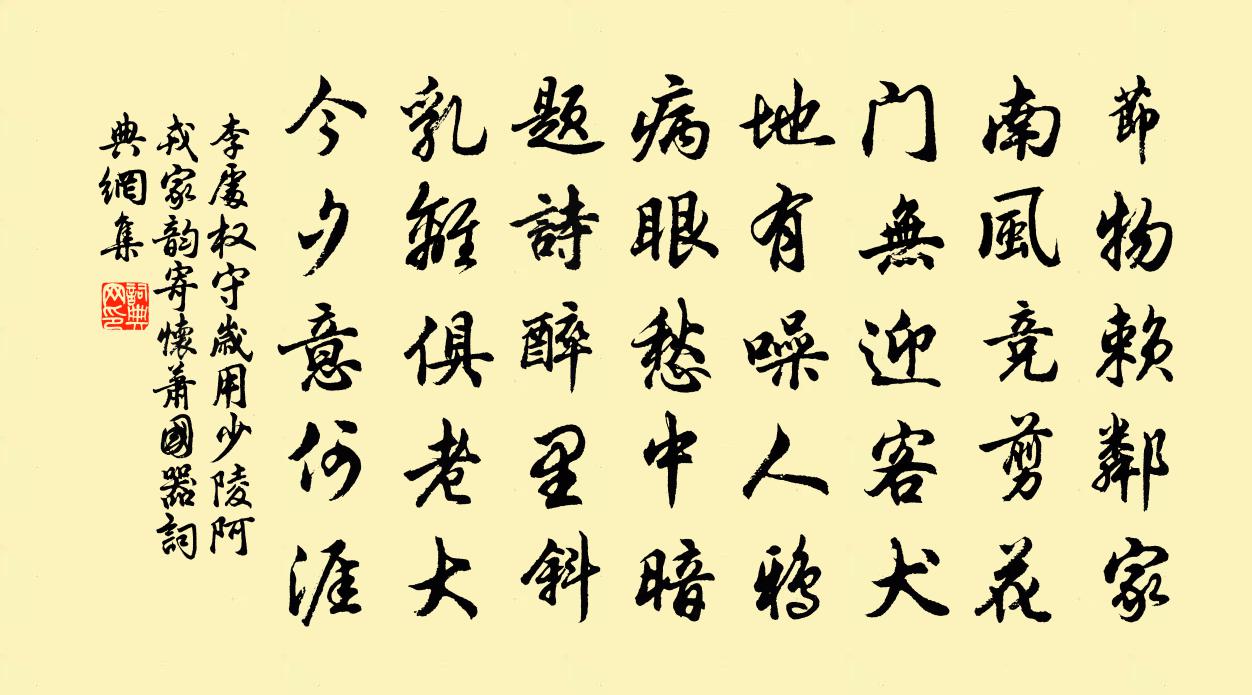 節物赖鄰家
南風竞剪花
门無迎客犬
地有噪人鴉
病眼愁中暗
题詩醉里斜
乳雞俱老大
今夕意何涯
李處权守歲用少陵阿
戎家韵寄懷蕭國器詞
典網集
詞典网印